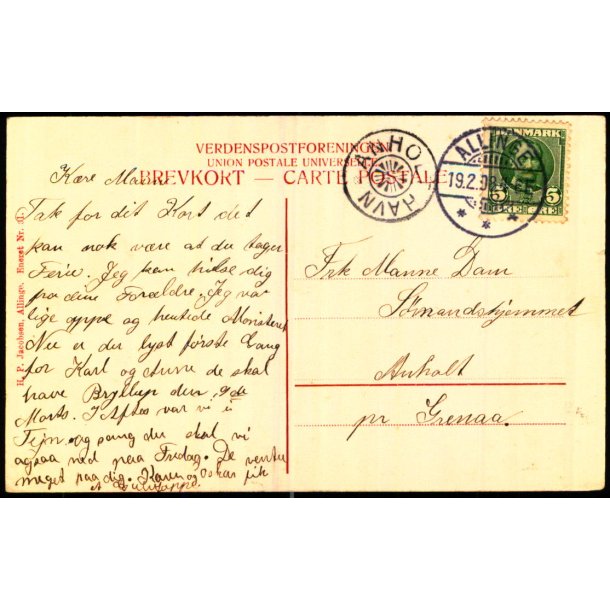 VERDENSPOSTFORENINGEN
UNION POSTALE UNIVERSELLE
BREVKORT — CARTE POSTALE
ANHOLT HAVN
ALLINGE
19.2.08
DANMARK
5 5
H. P. Jacobsen, Allinge. Eneret Nr.
Kære Manne
Tak for dit Kort det
kan nok være at du tager
Ferie. Jeg kan hilse dig
fra dine Forældre. Jeg var
lige oppe og hentede
Nu er du lyst første Gang
for Karl og de skal
have Bryllup den
Marts. I Aften var vi i
Tejn og du skal vi
ogsaa ned paa Fredag. De venter
meget paa dig. Karen og Oskar fik
Frk Manne Dam
Sömandshjemmet
Anholt
pr Grenaa.